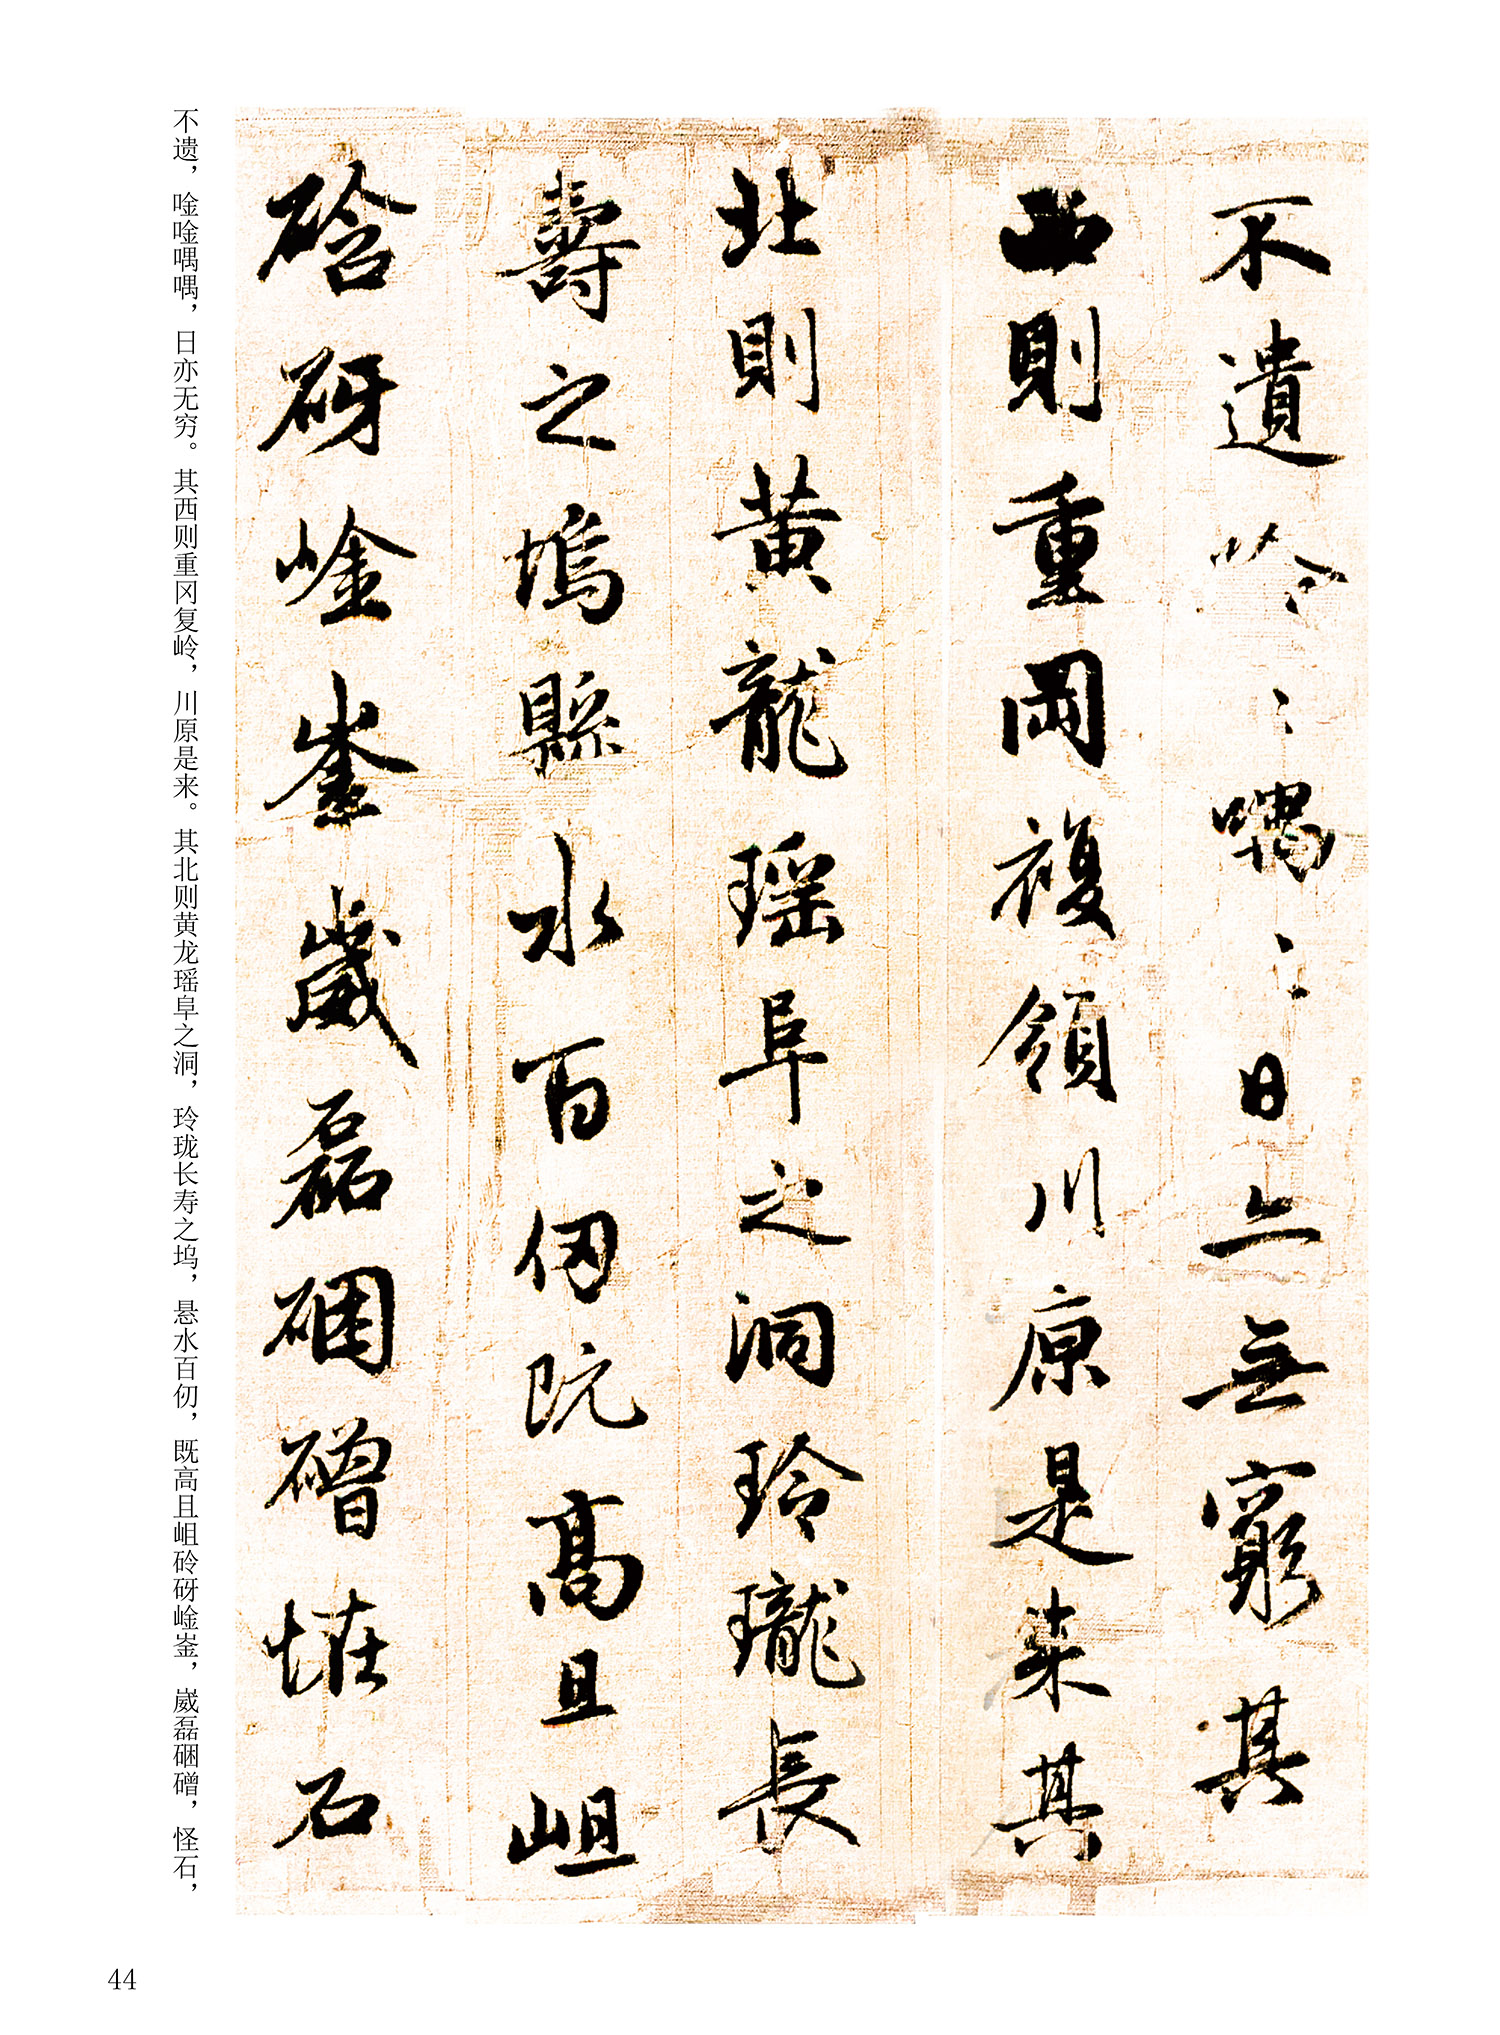 不遺吟〻喁〻日亦無窮其
西則重岡複領川原是来其
北則黄龍瑶阜之洞玲瓏長
壽之塢縣水百仞既高且岨
硆砑崯崟崴磊硱磳恠石
不遗，唫唫喁喁，日亦无穷。其西则重冈复岭，川原是来。其北则黄龙瑶阜之洞，玲珑长寿之坞，悬水百仞，既高且岨砱砑崯崟，崴磊硱磳，怪石，
44